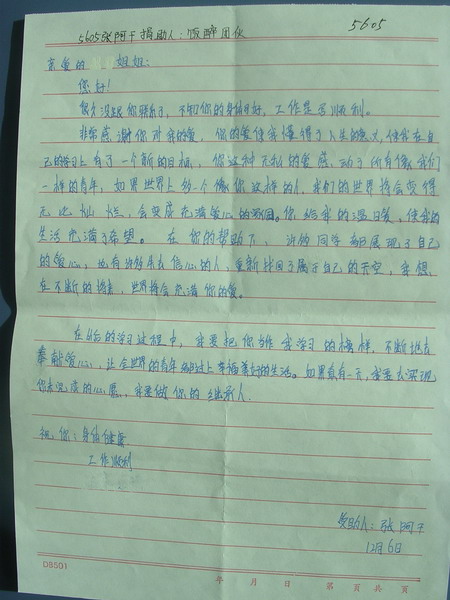 5605
5605张阿干 捐助人：饭醉团伙
亲爱的 姐姐：
您好！
您久没跟你联系了，不知你的身体日好，工作是否顺利。
非常感谢你对我的爱，你的爱使我懂得了人生的意义，使我在自
己的学习上有了一个新的目标，你这种无私的爱感动了所有像我们
一样的青年，如果世界上多一个像你这样的人，我们的世界将会变得
无比灿烂，会变成充满爱心的海国。你给我的温暖，使我的
生活充满了希望。在你的帮助下，许多同学都展现了自己
的爱心，也有许多失去信心的人，重新找回了属于自己的天空，我想
在不断的将来，世界将会充满你的爱。
在今后的学习过程中，我要把你当作我学习的榜样，不断地去
奉献爱心，让全世界的青年都过上幸福美好的生活。如果真有一天，我要去实现
你未完成的心愿，我要做你的继承人。
祝你：身体健康
工作顺利
受助人：张阿干
12月6日
DB501
年 月 日 第 页共 页